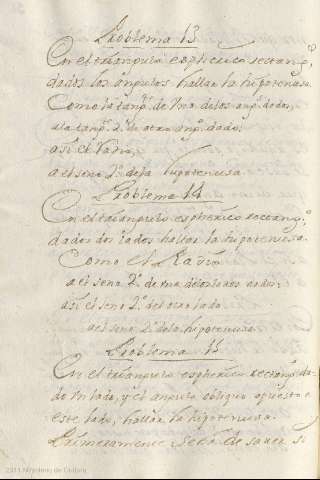 Problema 13
En el triangulo espherico rectang.o
dados los angulos hallar la hipotenusa.
Como la tang.e de Uno delos ang.s dados,
ala tang.e 2.a de otro ang.o dado;
asi el Radio,
a el seno 2.o dela hipotenusa.
Problema 14
En el triangulo espherico rectang.o
dados dos lados hallar la hipotenusa.
Como el Radio
a el seno 2.o de uno delos lados dados,
asi el seno 2.o del otro lado
a el seno 2.o dela hipotenusa.
Problema 15
En el triangulo espherico rectang.o da-
do Un lado, y el angulo obliquo opuesto a
este lado, hallar la hipotenusa.
Primeramente se ha de saver si
2011 Ministerio de Cultura